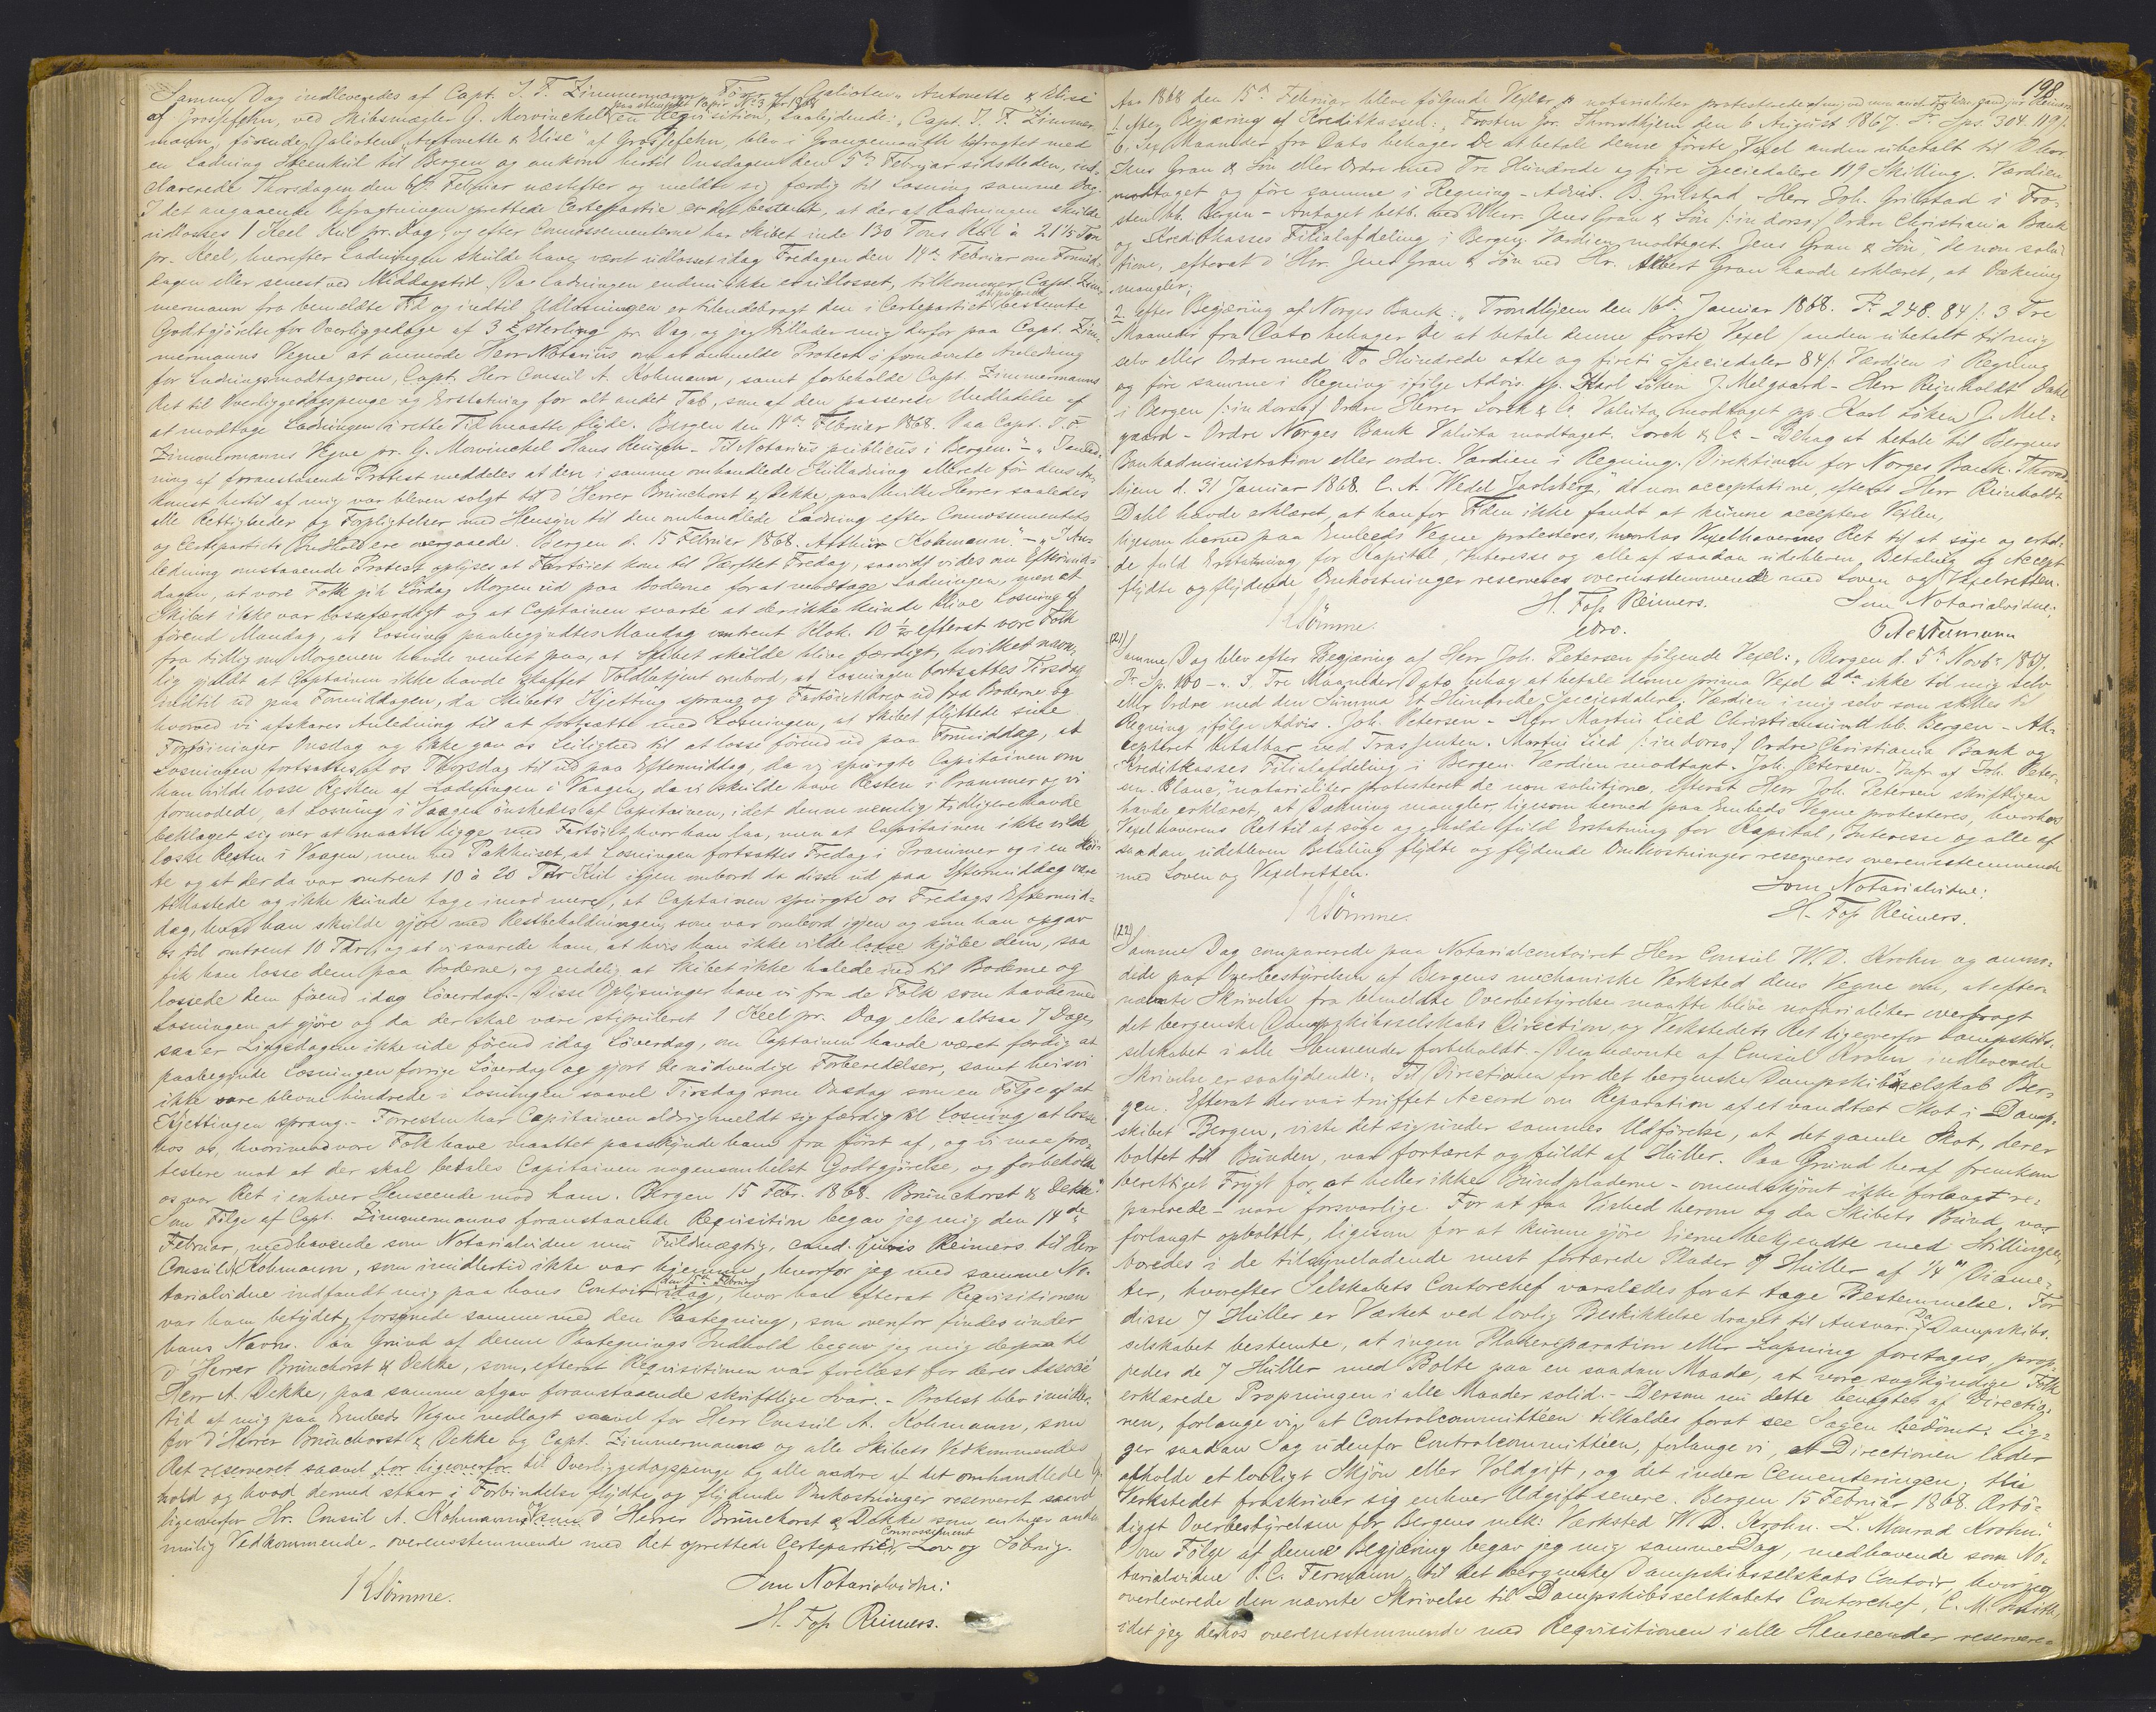 Samme Dag indleveredes af Capt. J. F. Zimmermann, Fører af Galioten "Antonette & Elise
af Grossefehn, ved Skibsmægler G. Mowinckel paa stemplet Papir No 3 for 1868 en Requisition, saalydende: "Capt. J. F. Zimmer-
mann, førende Galioten "Antonette & Elise" af Grossefehn, blev i Grangemouth befragtet med
en Ladning Steenkul til Bergen og ankom hertil Onsdagen den 5te Februar sidstleden, ind-
clarerede Thorsdagen den 6te Februar næstefter og meldte sig færdig til Losning samme Dag.
I det angaaende Befragtningen oprettede Certepartie er det bestemt, at der af Ladningen skulde
udlosses 1 Keel Kul pr. Dag, og efter Connossementerne har Skibet inde 130 Tons Kul à 21 1/5 Ton
pr. Keel, hvorefter Ladningen skulde have været udlosset idag Fredagen den 14de Februar om Formid-
dagen eller senest ved Middagstid. Da Ladningen endnu ikke er udlosset, tilkommer Capt. Zim-
mermann fra bemeldte Tid og indtil Udlosningen er tilendebragt den i Certepartiet stipulerede bestemte
Godtgjørelse for Overliggedage af 3 £ Sterling pr. Dag, og jeg tillader mig derfor paa Capt. Zim-
mermanns Vegne at anmode Herr Notarius om at anmelde Protest i fornævnte Anledning
for Ladningsmodtageren, Capt. Herr Consul A. Kohmann, samt forbeholde Capt. Zimmermanns
Ret til Overliggedagspenge og Erstatning for alt andet Tab, som af den passerede Undladelse af
at modtage Ladningen i rette Tid maatte flyde. Bergen den 14de Februar 1868. Paa Capt. J. F.
Zimmermanns Vegne pr. G. Mowinckel Hans Reusch – Til Notarius publicus i Bergen." – "I Anled-
ning af foranstaaende Protest meddeles at den i samme omhandlede Kulladning allerede før dens An-
komst hertil af mig var bleven solgt til d'Herrer Brunchorst & Dekke, paa hvilke Herrer saaledes
alle Rettigheder og Forpligtelser med Hensyn til den omhandlede Ladning efter Connossementets
og Certepartiets Indhold ere overgaaede. Bergen d. 15 Februar 1868. Arthur Kohmann." – "I An-
ledning omstaaende Protest oplyses at Fartøiet kom til Værftet Fredag, saavidt vides om Eftermid-
dagen, at vore Folk gik Lørdag Morgen ud paa Boderne for at modtage Ladningen, men at
Skibet ikke var lossefærdigt og at Captainen svarte at der ikke kunde blive Losning af
førend Mandag, at Losning paabegyndtes Mandag omtrent Klok. 10 1/2 efterat vore Folk
fra tidlig om Morgenen havde ventet paa, at Skibet skulde blive færdigt, hvilket navn-
lig gjaldt at Captainen ikke havde skaffet Toldbetjent ombord, at Losningen fortsattes Tirsdag
indtil ud paa Formiddagen, da Skibets Kjetting sprang og Fartøiet drev ud fra Boderne og
hvorved vi afskares Anledning til at fortsætte med Losningen, at Skibet flyttede sine
Fortøininger Onsdag og ikke gav os Leilighed til at losse førend ud paa Formiddag, at
Losningen fortsattes af os Thorsdag til ud paa Eftermiddag, da vi spurgte Capitainen om
han vilde losse Resten af Ladningen i Vaagen, da vi skulde have Resten i Prammer og vi
formodede, at Losning i Vaagen ønskedes af Capitainen, idet denne nemlig tidligere havde
beklaget sig over at maatte ligge med Fartøiet, hvor han laa, men at Capitainen ikke vilde
losse Resten i Vaagen, men ved Pakhuset, at Losningen fortsattes Fredag i Prammer og i en
te og at der da var omtrent 10 à 20 Tdr Kul igjen ombord da disse ud paa Eftermiddag vare
fuldlastede og ikke kunde tage imod mere, at Captainen spurgte os Fredags Eftermid-
dag, hvad han skulde gjøre med Restbeholdningen, som var ombord igjen og som han opgav
os til omtrent 10 Tdr., og at vi svarede ham, at hvis han ikke vilde losse kjøbe dem, saa
fik han losse dem paa Boderne, og endelig at Skibet ikke halede ind til Boderne og
lossede dem førend idag Løverdag. – Disse Oplysninger have vi fra de Folk som havde med
Losningen at gjøre og da der skal være stipuleret 1 Keel pr. Dag eller altsaa 7 Dage,
saa er Liggedagene ikke ude førend idag Løverdag, om Captainen havde været færdig at
paabegynde Losningen forrige Løverdag og gjort de nødvendige Forberedelser, samt hvis vi
ikke vare blevne hindrede i Losningen saavel Tirsdag som Onsdag som en Følge af at
Kjettingen sprang. – Forresten har Capitainen aldrig meldt sig færdig til Losning at losse
hos os, hvorimod vore Folk have maattet paaskynde ham fra først af, og vi maa pro-
testere mod at der skal betales Capitainen nogensomhelst Godtgjørelse, og forbeholde
os vor Ret i enhver Henseende mod ham. Bergen 15 Febr. 1868. Brunchorst & Dekke."
Som Følge af Capt. Zimmermanns foranstaaende Requisition begav jeg mig den 14de
Februar, medhavende som Notarialvidne min Fuldmægtig, cand. juris Reimers til Herr
Consul A. Kohmann, som imidlertid ikke var hjemme, hvorfor jeg med samme No-
tarialvidne indfandt mig paa hans Contoir den 15de Februar idag, hvor han efterat Requisitionen
var ham betydet, forsynede samme med den Paategning, som ovenfor findes under
hans Navn. Paa Grund af denne Paategnings Indhold begav jeg mig derpaa til
d'Herrer Brunchorst & Dekke, som, efterat Requisitionen var forelæst for deres Associé
Herr A. Dekke, paa samme afgav foranstaaende skriftlige Svar. – Protest blev imidler-
tid af mig paa Embeds Vegne nedlagt saavel for Herr Consul A. Kohmann, som
for d'Herrer Brunchorst & Dekke og Capt. Zimmermanns og alle Skibets Vedkommendes
Ret reserveret saavel for ligeoverfor til Overliggedagspenge og alle andre af det omhandlede
hold og hvad dermed staar i Forbindelse flydte og flydende Omkostninger reserveret saavel
ligeoverfor Hr. Consul A. Kohmann som d'Herrer Brunchorst & Dekke som enhver anden
mulig Vedkommende, overensstemmende med det oprettede Certepartie, Connossement Lov og Søbrug.
KSømme.
Som Notarialvidne:
H. Foss Reimers.
198
Aar 1868 den 15de Februar bleve følgende Vexler notarialiter protesterede
1. efter Begjæring af Kreditkassen: "Frosten pr. Throndhjem den 6 August 1867. Pr. Sps. 304. 119/.
6. Sex Maaneder fra Dato behager De at betale denne første Vexel anden ubetalt til D'Hrr
Jens Gran & Søn eller Ordre med Tre Hundrede og fire Speciedalere 119 Skilling. Værdien
modtaget og føre samme i Regning – Advis. B. Grilstad – Herr Joh. Grilstad i Fro-
sten bb. Bergen – Antaget betb. hos D'Hrr. Jens Gran & Søn /:in dorso:/ Ordre Christiania Bank
og Kreditkasses Filialafdeling i Bergen. Værdien modtaget. Jens Gran & Søn", de non solu-
tione, efterat d'Hrr. Jens Gran & Søn ved Hr. Albert Gran havde erklæret, at Dækning
mangler;
2. efter Begjæring af Norges Bank: "Trondhjem den 16de Januar 1868. Pr. 248. 84/. 3 Tre
Maaneder fra Dato behager De at betale denne første Vexel (anden ubetalt) til mig
selv eller Ordre med To Hundrede otte og firti Speciedaler 84/. Værdien i Regning
og føre samme i Regning ifølge Advis. pp. Karl Løken J. Melgaard – Herr Reinholdt Dahl
i Bergen /:in dorso:/ Ordre Herrer Lorck & Co, Valuta modtaget pp. Karl Løken J. Mel-
gaard – Ordre Norges Bank Valuta modtaget. Lorck & Co – Behag at betale til Bergens
Bankadministration eller ordre. Værdien i Regning. Direktionen for Norges Bank. Thrond-
hjem d. 31 Januar 1868. C. A. Wedel Jarlsberg," de non acceptatione, efterat Herr Reinholdt
Dahl havde erklæret, at han for Tiden ikke fandt at kunne acceptere Vexlen,
ligesom herved paa Embeds Vegne protesteres, hvorhos Vexelhaverens Ret til at søge og erhol-
de fuld Erstatning for Kapital, Interesse og alle af saadan udebleven Betaling og Accept
flydte og flydende Omkostninger reserveres overensstemmende med Loven og Vexelretten.
KSømme.
H. Foss Reimers.
Som Notarialvidne:
(21)
Samme Dag blev efter Begjæring af Herr Joh. Petersen følgende Vexel: "Bergen d. 5te Novbr 1867.
Pr. Sp. 100 – ". 3. Tre Maaneder Dato behag at betale denne prima Vexel 2da ikke til mig selv
eller Ordre med den Summa Et Hundrede Speciesdalere, Værdien i mig selv som stilles til
Regning ifølge Advis. Joh. Petersen – Herr Martin Lied Christianssund bb. Bergen – Ak-
cepteret betalbar ved Trassenten. Martin Lied /:in dorso:/ Ordre Christiania Bank og
Kreditkasses Filialafdeling i Bergen. Værdien modtaget. Joh. Petersen. – af Joh. Peter-
sen. Blanc, notarialiter protesteret de non solutione, efterat Herr Joh. Petersen skriftligen
havde erklæret, at Dækning mangler, ligesom herved paa Embeds Vegne protesteres, hvorhos
Vexelhaverens Ret til at søge og erholde fuld Erstatning for Kapital, Interesse og alle af
saadan udebleven Betaling flydte og flydende Omkostninger reserveres overensstemmende
med Loven og Vexelretten.
Som Notarialvidne:
KSømme.
H. Foss Reimers.
(22)
Samme Dag comparerede paa Notarialcontoiret Herr Consul W. D. Krohn og anmo-
dede paa Overbestyrelsen af Bergens mechaniske Verksted dens Vegne om, at efter-
nævnte Skrivelse fra bemeldte Overbestyrelse maatte blive notarialiter overbragt
det bergenske Dampskibsselskabs Direction, og Verkstedets Ret ligeoverfor Dampskibs-
selskabet i alle Henseender forbeholdt. – Den nævnte af Consul Krohn indleverede
Skrivelse er saalydende: "Til Directionen for det bergenske Dampskibsselskab Ber-
gen. Efterat der var truffet Accord om Reparation af et vandtæt Skot i Damp-
skibet Bergen, viste det sig under sammes Udførelse, at det gamle Skot, der er
boltet til Bunden, var fortæret og fuldt af Huller. Paa Grund heraf fremkom
berettiget Frygt for, at heller ikke Bundpladerne – omendskjønt ikke forlangt re-
parerede – vare forsvarlige. For at faa Vished herom og da Skibets Bund var
forlangt opboltet, ligesom for at kunne gjøre Eierne bekjendte med Stillingen,
boredes i de tilsyneladende mest fortærede Plader 7 Huller af 1/4" Diame-
ter, hvorefter Selskabets Contorchef varsledes for at tage Bestemmelse. For
disse 7 Huller er Værket ved lovlig Beskikkelse draget til Ansvar. Da Dampskibs-
selskabet bestemte, at ingen Pladereparation eller Lapning foretages, prop-
pedes de 7 Huller med Bolte paa en saadan Maade, at vore sagkyndige Folk
erklærede Propningen i alle Maader solid. – Dersom nu dette benegtes af Directio-
nen, forlange vi, at Controlcommittéen tilkaldes forat see Sagen bedømt. Lig-
ger saadan Sag udenfor Controlcommittéen, forlange vi, at Directionen lader
afholde et lovligt Skjøn eller Voldgift, og det inden Cementeringen, thi
Verkstedet fraskriver sig enhver Udgift senere. Bergen 15 Februar 1868. Ærbø-
digst Overbestyrelsen for Bergens mek: Værksted W. D. Krohn. L. Monrad Krohn."
Som Følge af denne Begjæring begav jeg mig samme Dag, medhavende som No-
tarialvidne P. C. Termann, til det bergenske Dampskibsselskabs Contoir, hvor jeg
overleverede den nævnte Skrivelse til Dampskibsselskabets Contorchef, C. M. Smith,
idet jeg derhos overensstemmende med Requisitionen i alle Henseender reservere-